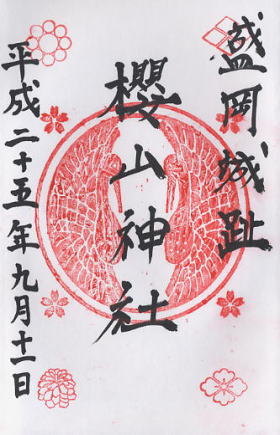 盛岡城趾
櫻山神社
平成二十五年九月十一日